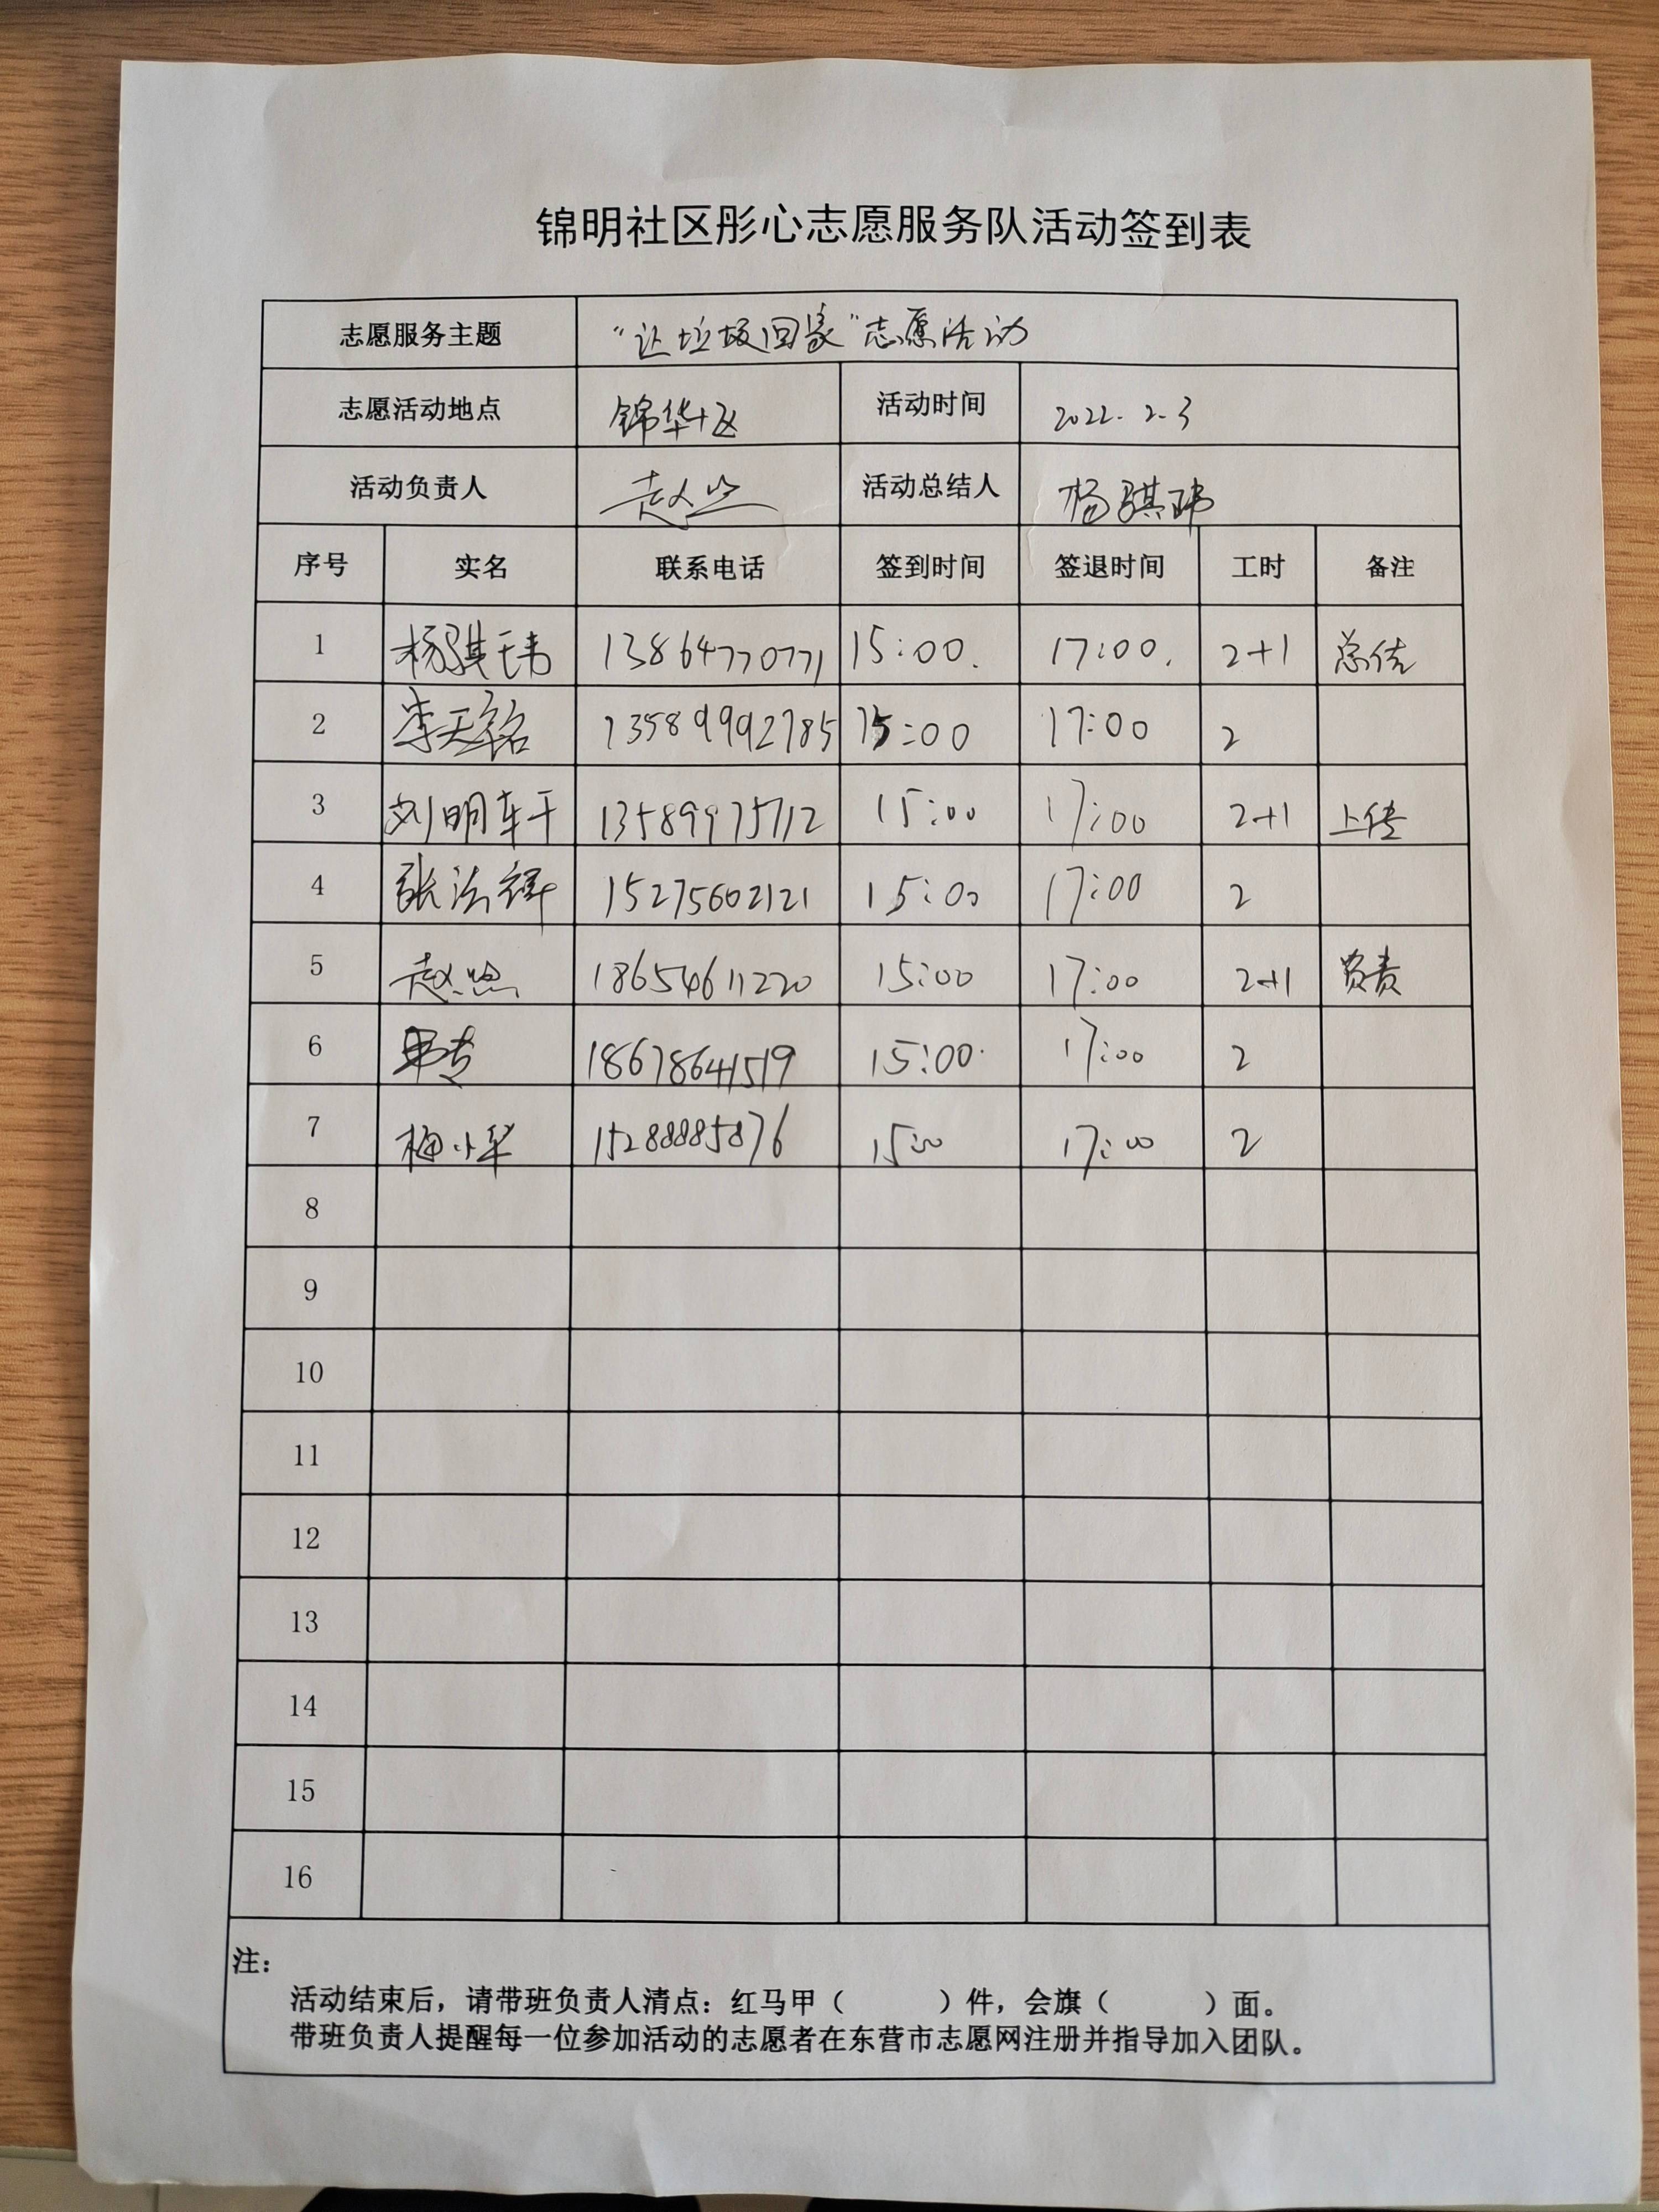 锦明社区彤心志愿服务队活动签到表
志愿服务主题 “让垃圾回家”志愿活动
志愿活动地点 锦华十区 活动时间 2022.2.3
活动负责人 赵 活动总结人 杨骐玮
序号 实名 联系电话 签到时间 签退时间 工时 备注
1 杨骐玮 13864770771 15:00. 17:00. 2+1 总结
2 李天铭 13589992785 15:00 17:00 2
3 刘明轩 13589975712 15:00 17:00 2+1 上传
4 张法祥 15275602121 15:00 17:00 2
5 赵 18654611220 15:00 17:00 2+1 负责
6 18678641519 15:00 17:00 2
7 梅小军 15288885876 15:00 17:00 2
8
9
10
11
12
13
14
15
16
注：
活动结束后，请带班负责人清点：红马甲（ ）件，会旗（ ）面。
带班负责人提醒每一位参加活动的志愿者在东营市志愿网注册并指导加入团队。